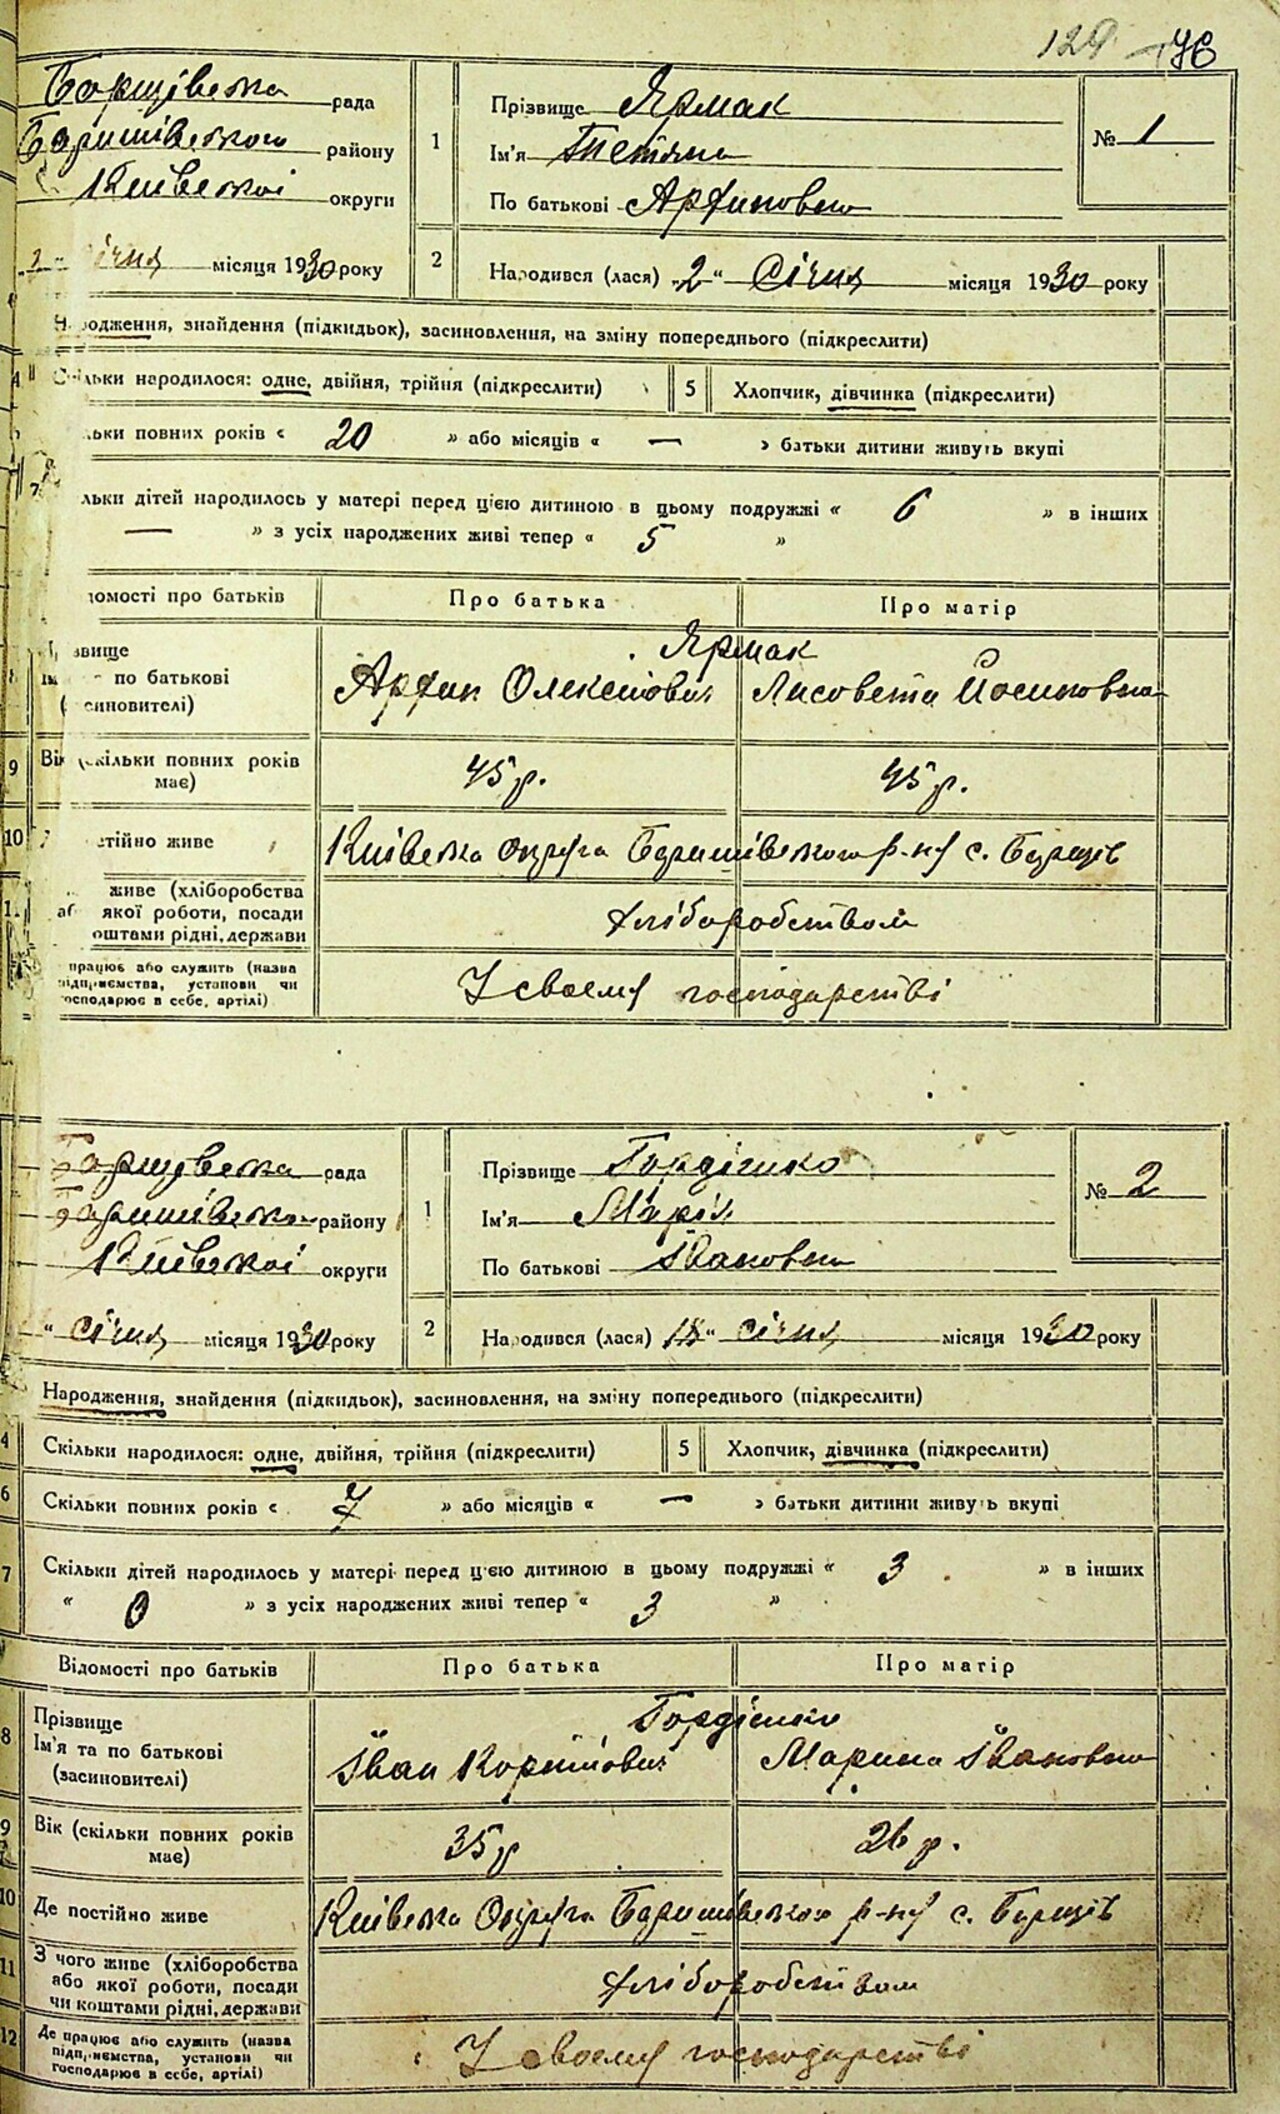 129 76
Борщівська рада
Баришівського району
Київської округи
1
Прізвище Ярмак
Ім'я Тетяна
По батькові Архиповна
№ 1
січня місяця 1930 року
2
Народився (лася) „2" Січня місяця 1930 року
Народження, знайдення (підкидьок), засиновлення, на зміну попереднього (підкреслити)
4 Скільки народилося: одне, двійня, трійня (підкреслити) 5 Хлопчик, дівчинка (підкреслити)
льки повних років « 20 » або місяців « — » батьки дитини живуть вкупі
7 льки дітей народилось у матері перед цією дитиною в цьому подружжі « 6 » в інших
— » з усіх народжених живі тепер « 5 »
домості про батьків Про батька Про матір
звище Ярмак
по батькові Архип Олексійович Лисовета Йосиповна
(синовителі)
9 Вік (скільки повних років має) 45 р. 45 р.
10 стійно живе Київська округа Баришівського р-ну с. Борщів
11 живе (хліборобства
якої роботи, посади Хліборобством
оштами рідні, держави
працює або служить (назва
підприємства, установи чи У своєму господарстві
господарює в себе, артілі)
Борщівська рада
Баришівського району
Київської округи
1
Прізвище Гордієнко
Ім'я Марія
По батькові Івановна
№ 2
" січня місяця 1930 року
2
Народився (лася) 18" січня місяця 1930 року
Народження, знайдення (підкидьок), засиновлення, на зміну попереднього (підкреслити)
4 Скільки народилося: одне, двійня, трійня (підкреслити) 5 Хлопчик, дівчинка (підкреслити)
6 Скільки повних років « 7 » або місяців « — » батьки дитини живуть вкупі
7 Скільки дітей народилось у матері перед цією дитиною в цьому подружжі « 3 » в інших
« 0 » з усіх народжених живі тепер « 3 »
Відомості про батьків Про батька Про матір
8 Прізвище Гордієнко
Ім'я та по батькові Іван Корнійович Марина Івановна
(засиновителі)
9 Вік (скільки повних років має) 35 р 26 р.
10 Де постійно живе Київська Округа Баришівського р-ну с. Борщів
11 З чого живе (хліборобства
або якої роботи, посади Хліборобством
чи коштами рідні, держави
12 Де працює або служить (назва
підприємства, установи чи У своєму господарстві
господарює в себе, артілі)